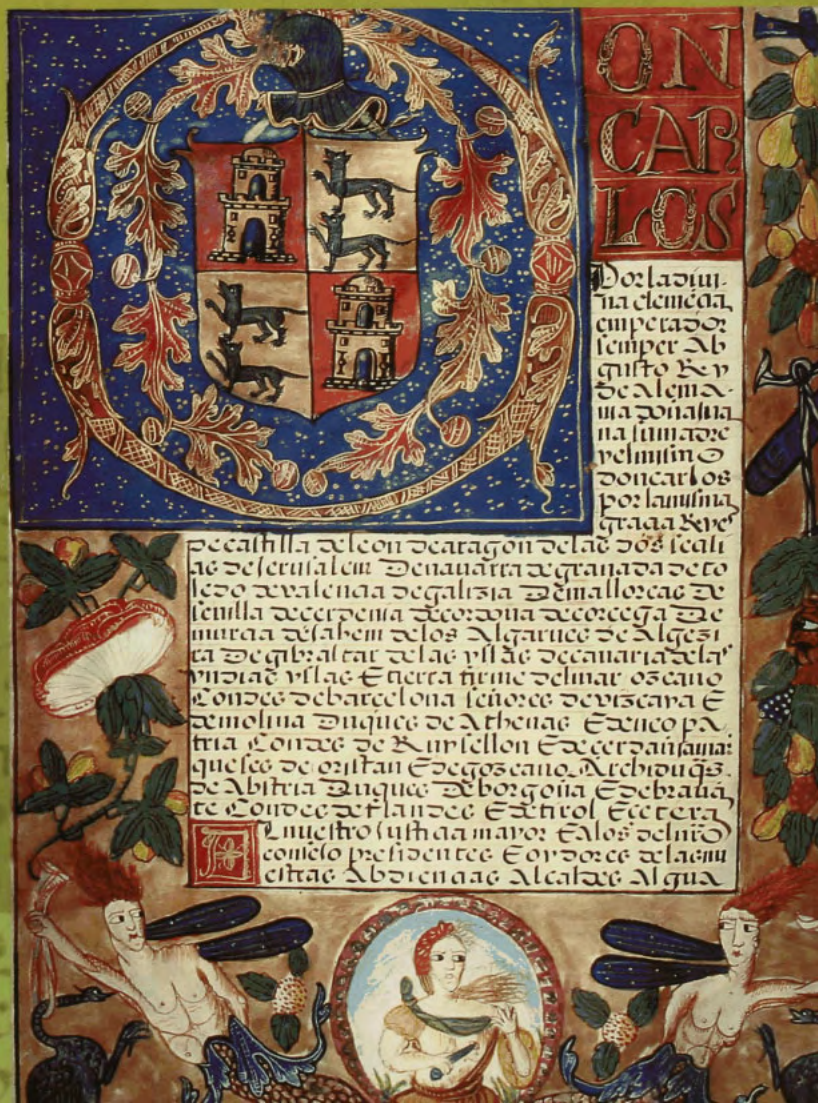 ON
CAR
LOS
Por la divi-
na clemēcia
emperador
semper Ab
gusto Rey
de Alema-
nia doña Jua
na su madre
y el mismo
don carlos
por la misma
gracia Reyes
de castilla de leon de aragon de las dos secili
as de Jerusalem De navarra de granada de to
ledo de valencia de galizia De mallorcas de
sevilla de cerdenia de cordova de corcega De
murcia de Jahem de los Algarves de Algezi
ra De gibraltar de las yslas de canaria de las
yndias yslas E tierra firme del mar ozeano
Condes de barcelona señores de vizcaya E
de molina Duques de Athenas E de neo pa
tria Condes de Ruysellon E de cerdania mar
queses de oristan E de gozeano Archiduq̄s
de Abstria Duques De borgoña E de brava
te Condes de flandes E de tirol Ecetera
A l nuestro Justicia mayor E a los del nr̄o
consejo presidentes E oydores de las nu
estras Abdiencias Alcaldes Algua